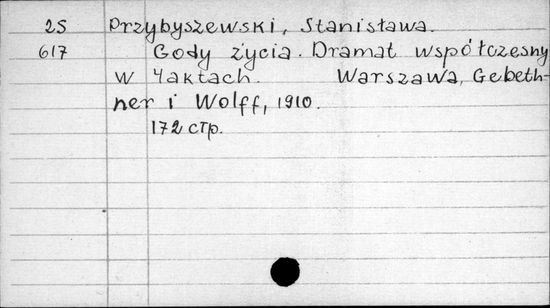 2S Przybyszewski, Stanisława.
617 Gody życia. Dramat współczesny
w 4aktach. Warszawa, Gebeth-
ner i Wolff, 1910.
172 стр.